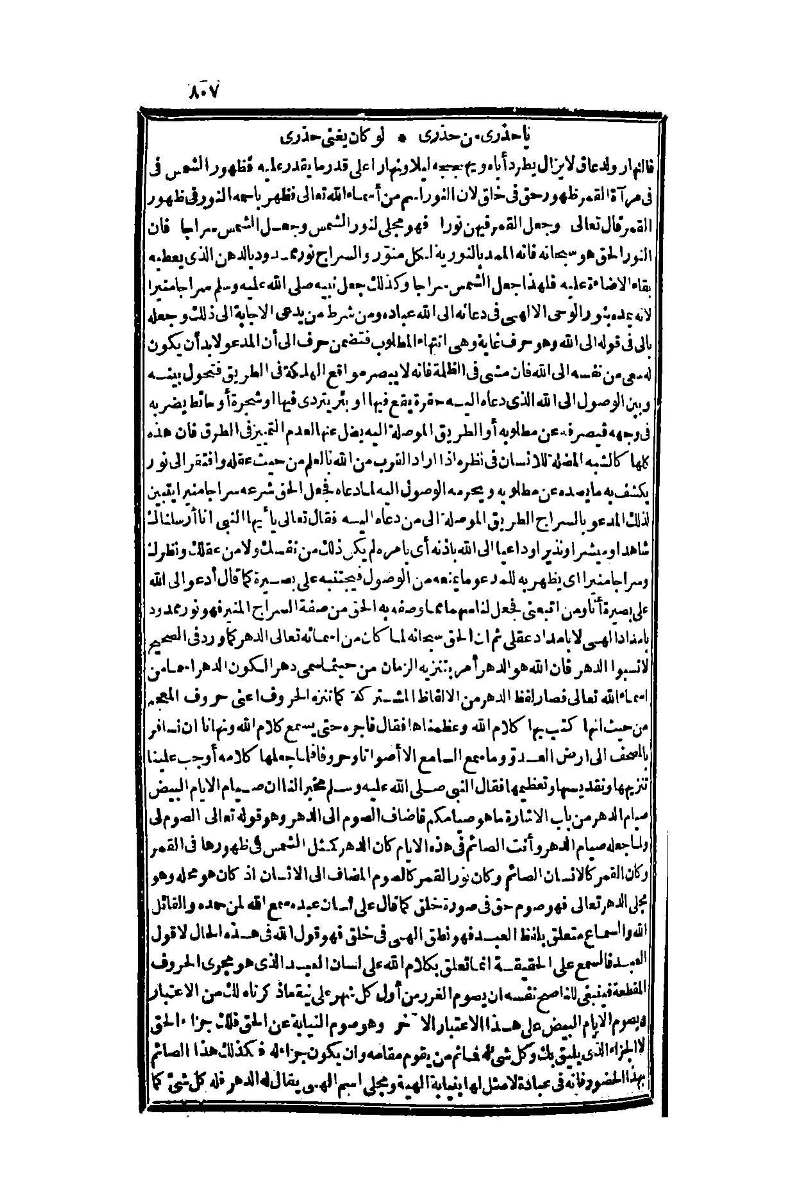 ٨٠٧
يا حذرى من حذرى * لو كان يغنى حذرى
فالنهار ولد عاق لا يزال يطرد أباه ويهججه ليلا ونهارا على قدر ما يقدر عليه فظهور الشمس فى
فى مرآة القمر ظهور حق فى خلق لان النور اسم من أسماء الله تعالى فظهر باسمه النور فى ظهور
القمر قال تعالى وجعل القمر فيهن نورا فهو مجلى لنور الشمس وجعل الشمس سراجا فان
النور الحق هو سبحانه فانه الممد بالنورية لكل منور والسراج نور ممدود بالدهن الذى يعطيه
بقاء الاضاءة عليه فلهذا جعل الشمس سراجا وكذلك جعل نبيه صلى الله عليه وسلم سراجا منيرا
لانه يمده بنور الوحى الالهى فى دعائه الى الله عباده ومن شرط من يدعى الاجابة الى ذلك وجعله
بالى فى قوله الى الله وهو حرف غاية وهى انتهاء المطلوب فتضمن حرف الى أن المدعو لابد أن يكون
له سعى من نفسه الى الله فان مشى فى الظلمة فانه لا يبصر مواقع الهلكة فى الطريق فتحول بينه
وبين الوصول الى الله الذى دعاه اليه حفرة يقع فيها أو بئر يتردى فيها أو شجرة أو حائط يضرب به
فى وجهه فيصرفه عن مطلوبه أو الطريق الموصلة اليه يضل عنها لعدم التمييز فى الطرق فان هذه
كلها كالشبه المضلة للانسان فى نظره اذا اراد القرب من الله بالعلم من حيث عقله وافتقر الى نور
يكشف به ما يصده عن مطلوبه ويحرمه الوصول اليه لما دعاه فجعل الحق شرعه سراجا منيرا يتبين
لذلك المدعو بالسراج الطريق الموصلة الى من دعاه اليه فقال تعالى يا أيها النبى انا أرسلناك
شاهدا ومبشرا ونذيرا وداعيا الى الله باذنه أى بامره لم يكن ذلك من نفسك ولا من عقلك ونظرك
وسراجا منيرا اى يظهر به للمدعو ما يمنعه من الوصول فيجتنبه على بصيرة كما قال أدعو الى الله
على بصيرة أنا ومن اتبعنى فجعل لنا سهما مما وصفه به الحق من صفة السراج المنير فهو نور ممدود
بامداد الهى لا بامداد عقلى ثم ان الحق سبحانه لما كان من اسمائه تعالى الدهر كما ورد فى الصحيح
لا تسبوا الدهر فان الله هو الدهر أمر بتنزيه الزمان من حيث ما سمى دهر الكون الدهر اسما من
اسماء الله تعالى فصار لفظ الدهر من الالفاظ المشتركة كما تنزه الحروف اعنى حروف المعجم
من حيث انها كتب بها كلام الله وعظمناها فقال فاجره حتى يسمع كلام الله ونهانا ان نسافر
بالمصحف الى ارض العدو وما سمع السامع الا أصواتا وحروفا فلما جعلها كلامه أوجب علينا
تنزيهها وتقديسها وتعظيمها فقال النبى صلى الله عليه وسلم مخبرا لنا ان صيام الايام البيض
صيام الدهر من باب الاشارة ما هو صيامكم فاضاف الصوم الى الدهر وهو قوله تعالى الصوم لى
ولما جعله صيام الدهر وأنت الصائم فى هذه الايام كان الدهر كمثل الشمس فى ظهورها فى القمر
وكان القمر كالانسان الصائم وكان نور القمر كالصوم المضاف الى الانسان اذ كان هو محله وهو
مجلى الدهر تعالى فهو صوم حق فى صورة خلق كما قال على لسان عبده سمع الله لمن حمده والقائل
الله والسماع متعلق بلفظ العبد فهو نطق الهى فى خلق فهو قول الله فى هذه الحال لا قول
العبد فالسمع على الحقيقة انما تعلق بكلام الله على لسان العبد الذى هو مجرى الحروف
المقطعة فينبغى للناصح نفسه ان يصوم الغرر من أول كل شهر على نية ما ذكرناه لك من الاعتبار
ويصوم الايام البيض على هذا الاعتبار الآخر وهو صوم النيابة عن الحق فلك جزاء الحق
لا الجزاء الذى يليق بك وكل شئ له فما ثم من يقوم مقامه وان يكون جزاء له فكذلك هذا الصائم
بهذا الحضور فانه فى عبادة لا مثل لها بنيابة الهية ومجلى اسم الهى يقال له الدهر فله كل شئ كما